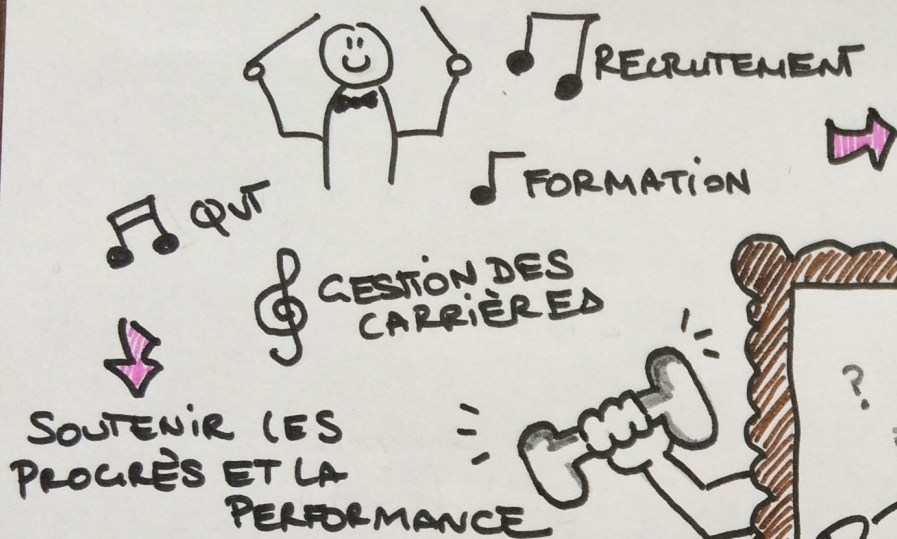 RECRUTEMENT
FORMATION
QVT
GESTION DES
CARRIÈRES
SOUTENIR LES
PROGRÈS ET LA
PERFORMANCE
?